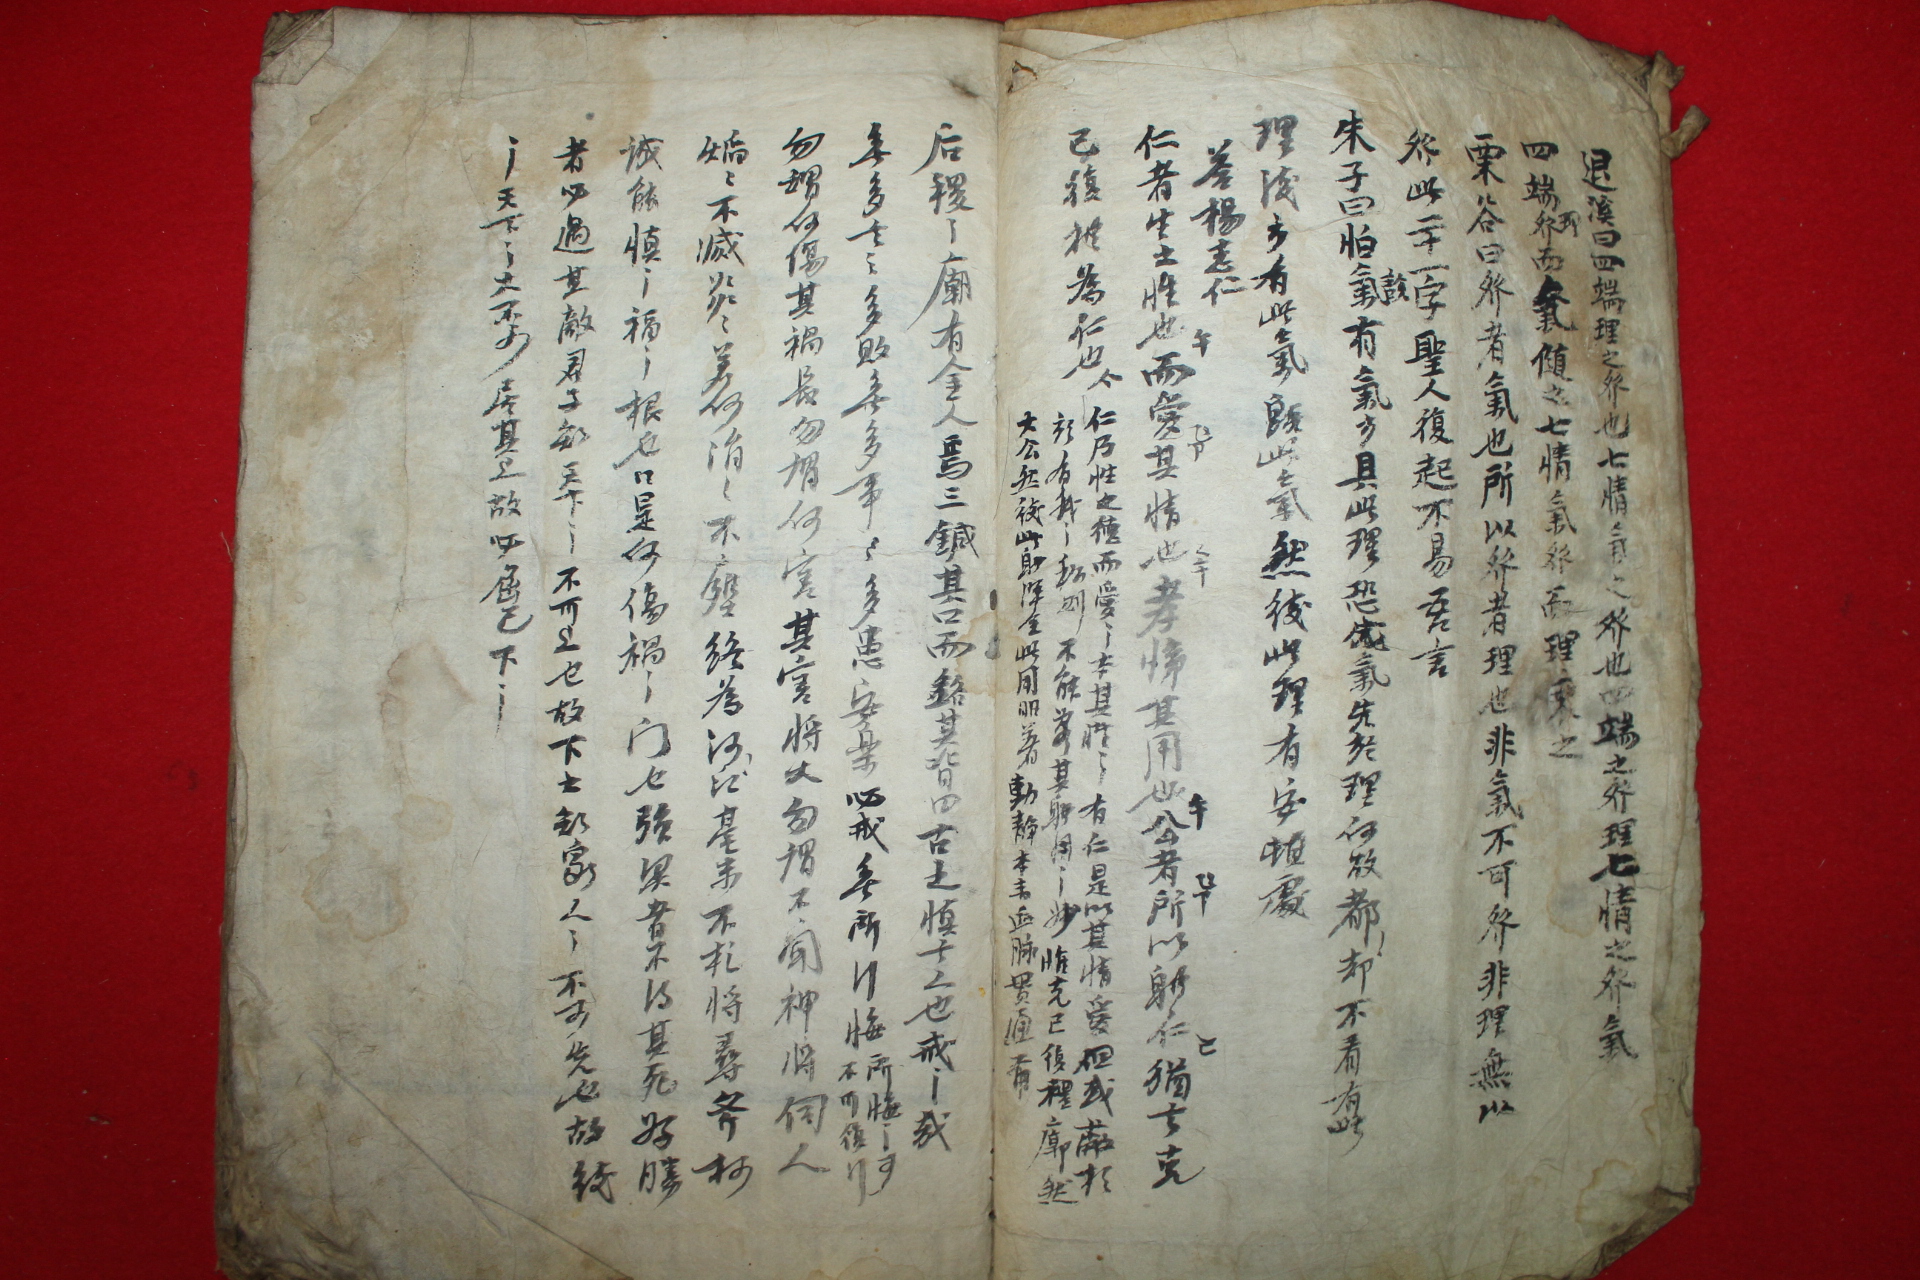 退溪曰四端理之發也七情氣之發也四端之發理七情之發氣
四端理發而氣隨之七情氣發而理乘之
栗谷曰發者氣也所以發者理也非氣不可發非理無以
發此二十一字聖人復起不易吾言
朱子曰怕氣有氣方具此理恐成氣先於理何故都却不看有此
理後方有此氣旣此氣然後此理有安頓處
答楊志仁
仁者生之性也而愛其情也孝悌其用也公者所以躰仁猶言克
己復禮爲仁也
仁乃性之德而愛之本其性之有仁是以其情愛但或蔽於
有我之私則不能盡其躰用之妙惟克己復禮廓然
大公然後此躰渾全此用昭著動静本末血脉貫通
后稷之廟有金人焉三鍼其口而銘其背曰古之慎言人也戒之哉
無多言言多敗無多事事多患安樂必戒無所行悔所悔之事不可復行
勿謂何傷其禍長勿謂何害其害將大勿謂不聞神將伺人
焰焰不滅炎炎若何涓涓不壅終爲江河毫末不札將尋斧柯
誠能慎之福之根也口是何傷禍之門也强梁者不得其死好勝
者必遇其敵君子知天下之不可上也故下之知衆人之不可先也故後
之天下